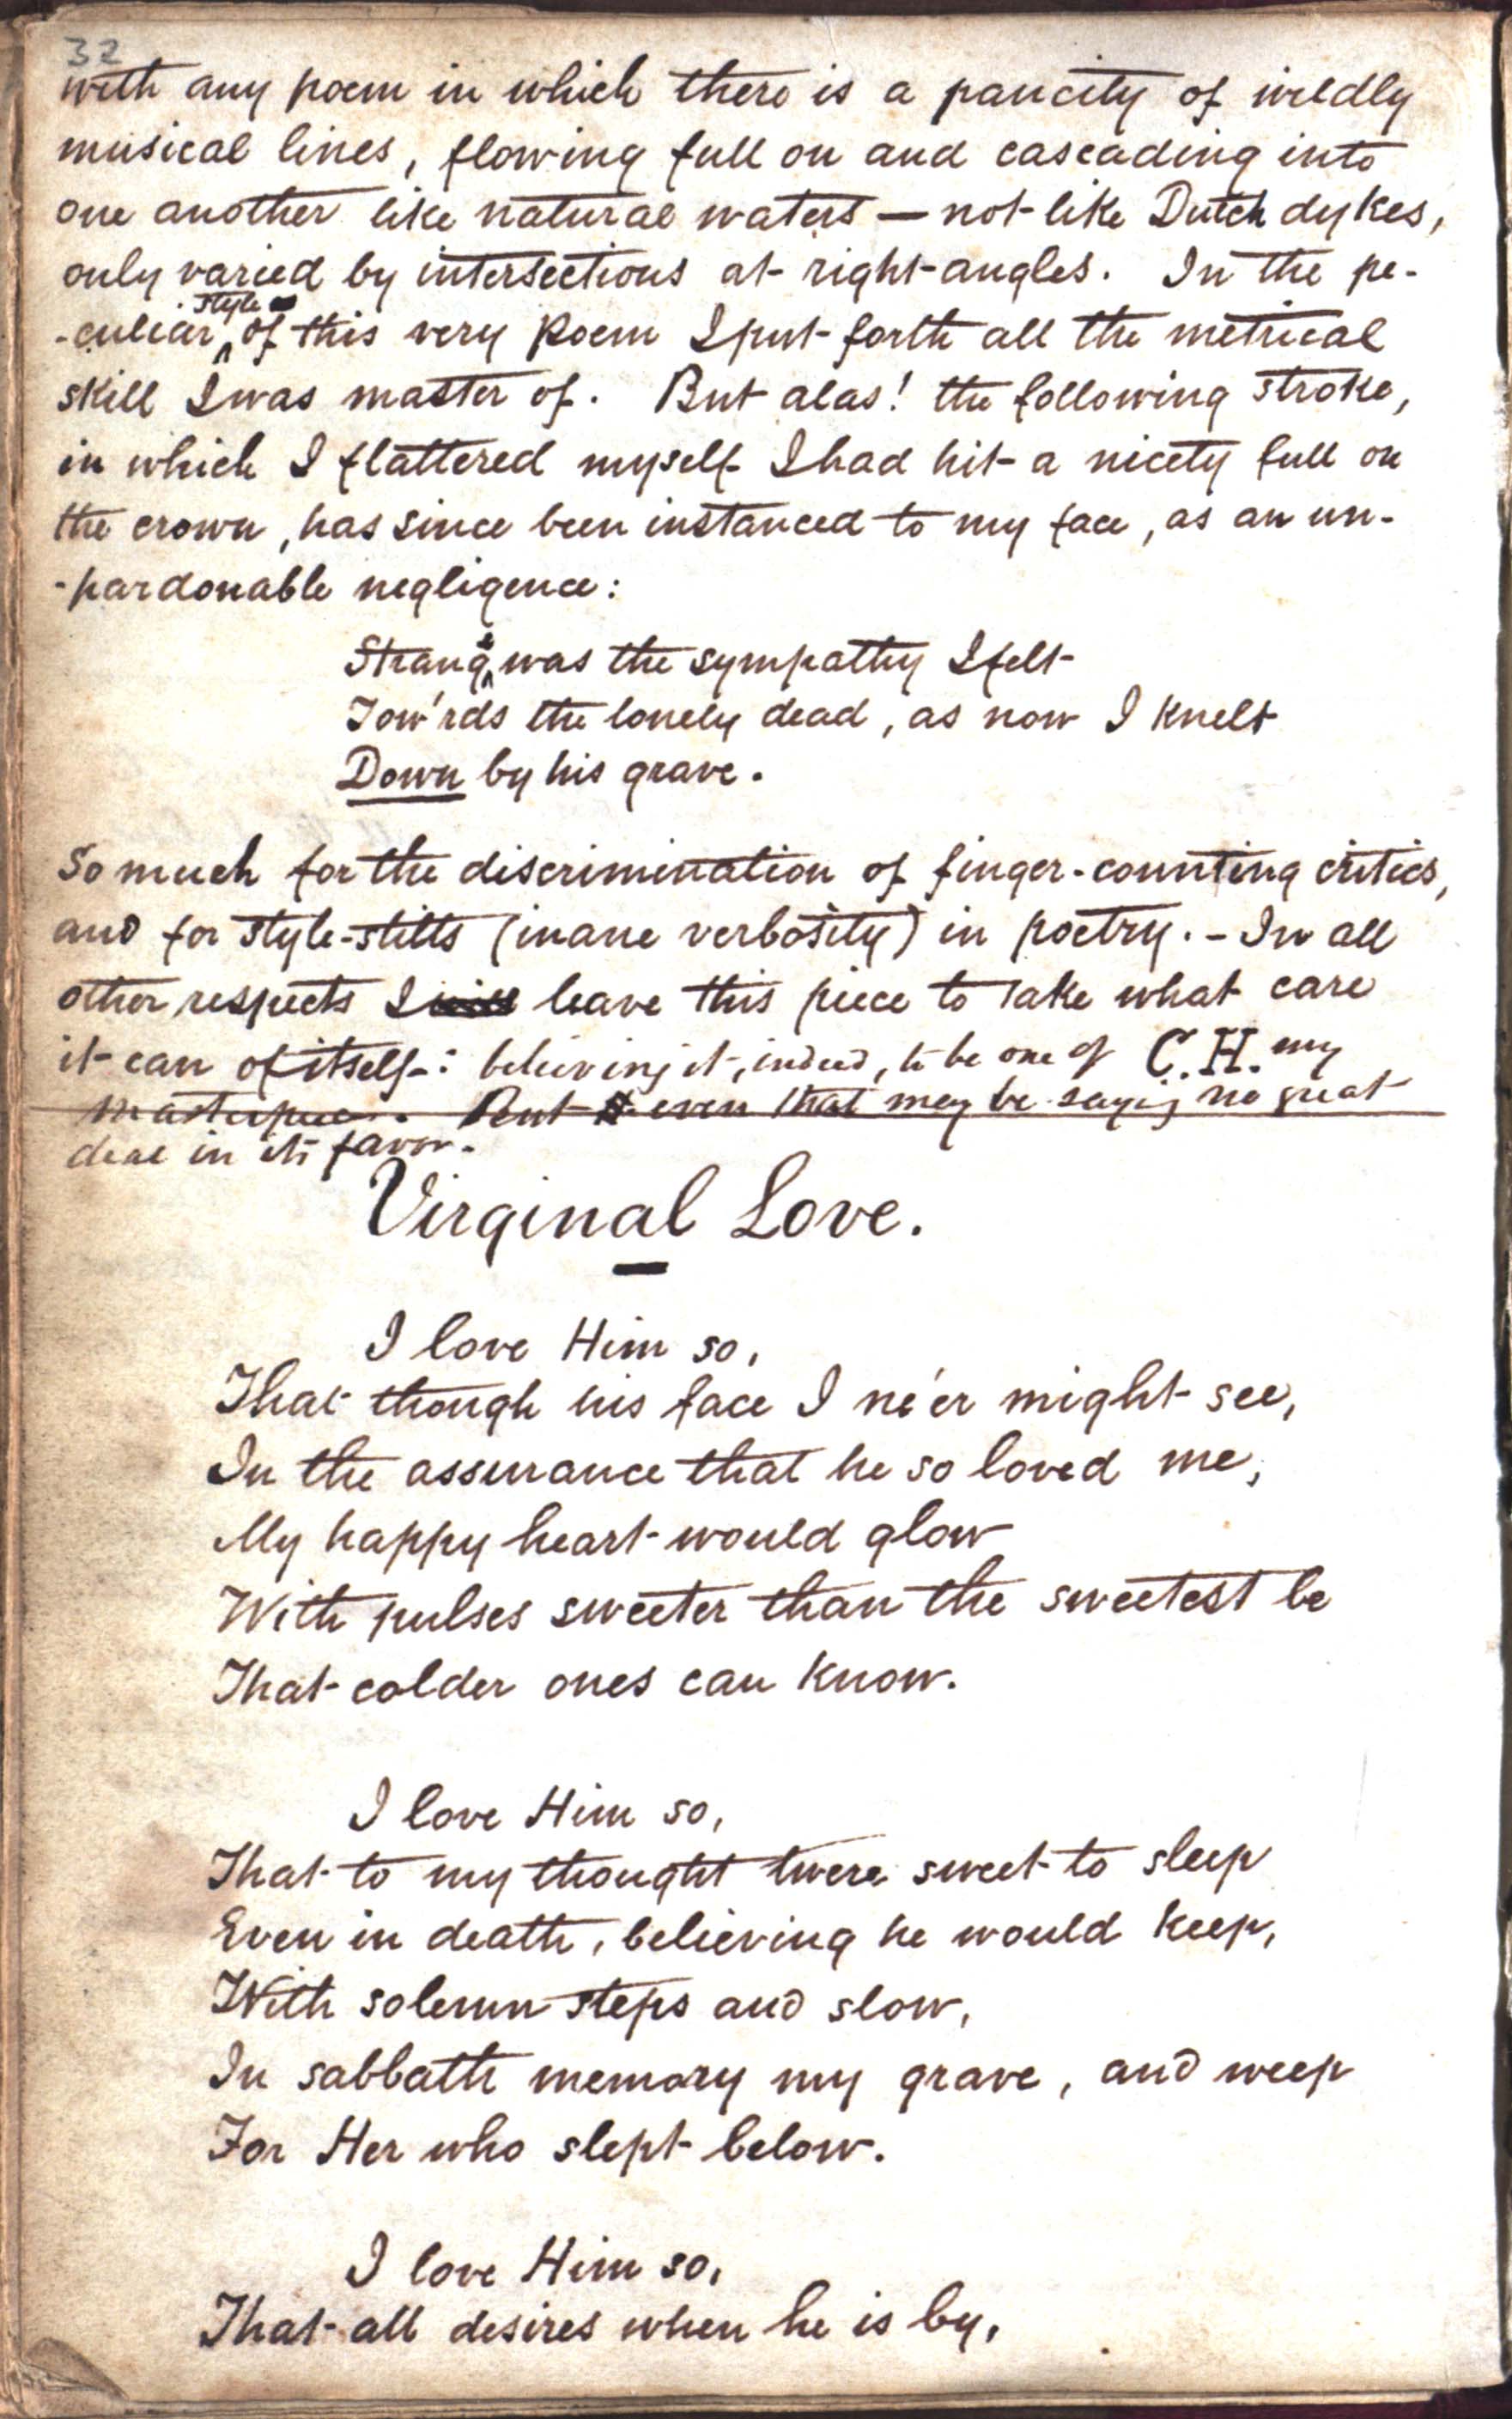 32
with any poem in which there is a paucity of wildly
musical lines, flowing full on and cascading into
one another like natural waters — not like Dutch dykes,
only varied by intersections at right-angles. In the pe-
-culiar style of this very Poem I put forth all the metrical
skill I was master of. But alas! the following stroke,
in which I flattered myself I had hit a nicety full on
the crown, has since been instanced to my face, as an un-
-pardonable negligence:
Strange was the sympathy I felt
Tow'rds the lonely dead, as now I knelt
Down by his grave.
So much for the discrimination of finger-counting critics,
and for style-stilts (inane verbosity) in poetry. – In all
other respects I will leave this piece to take what care
it can of itself: believing it, indeed, to be one of my C.H.
masterpieces. But even that may be saying no great
deal in its favor.
Virginal Love.
I love Him so,
That though his face I ne'er might see,
In the assurance that he so loved me,
My happy heart would glow
With pulses sweeter than the sweetest be
That colder ones can know.
I love Him so,
That to my thought twere sweet to sleep
Even in death, believing he would keep,
With solemn steps and slow,
In sabbath memory my grave, and weep
For Her who slept below.
I love Him so,
That all desires when he is by,